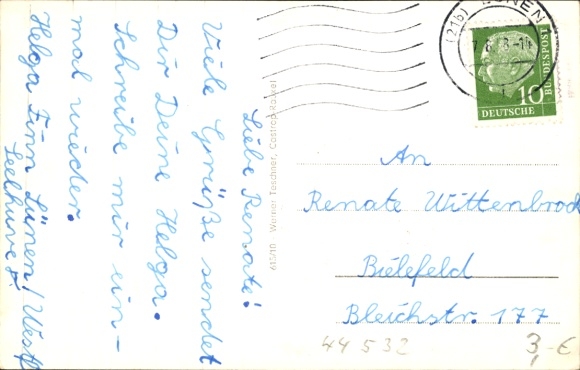 Liebe Renate!
Viele Grüße sendet
Dir Deine Helga.
Schreibe mir ein-
mal wieder.
Helga Finn Lünen/Westf
613/10 Werner Teschner, Castrop-Rauxel
(21b) LÜNEN
DEUTSCHE
BUNDESPOST
10
An
Renate Wittenbrock
Bielefeld
Bleichstr. 177
44 532
3,-€